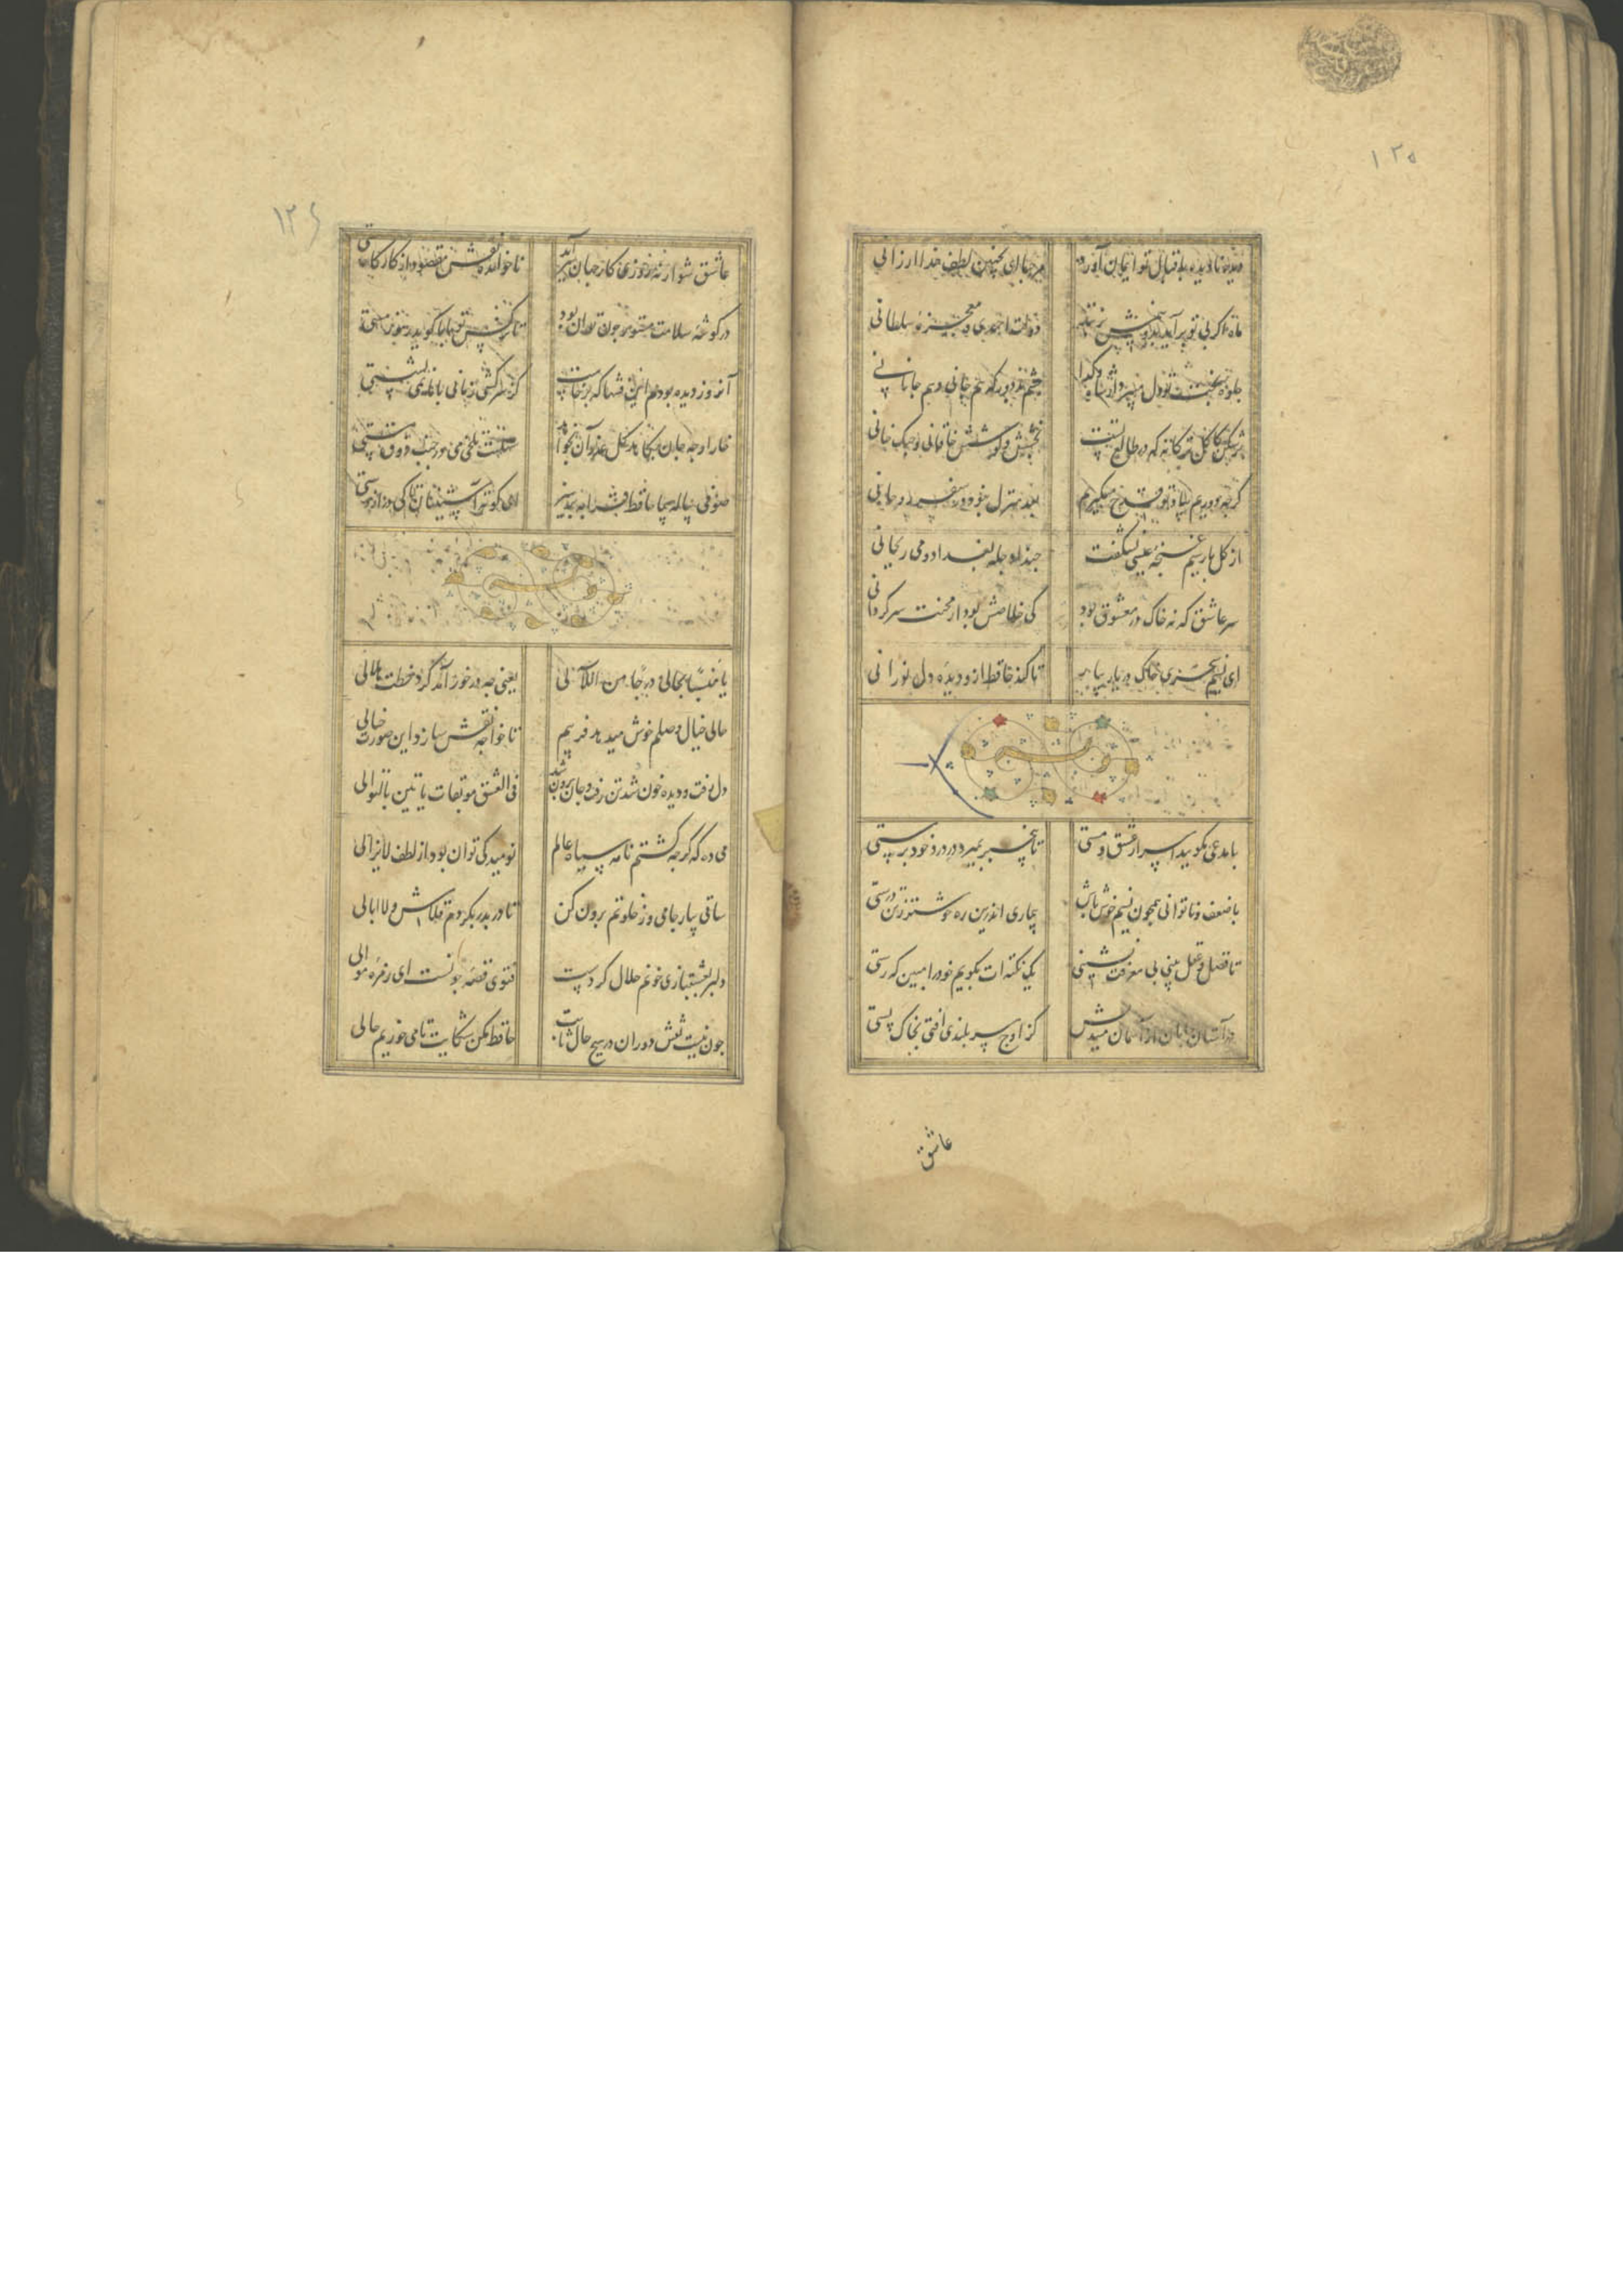 ۱۲۵
دیده نادیده باقبال تو ایمان آورد مرحبا ای بچنین لطف خدا ارزانی
ماه اگر بی تو برآید بدو نیمش بزنند دولت احمدی و معجزه سلطانی
جلوه بخت تو دل میبرد از شاه و گدا چشم بد دور که هم جانی و هم جانانی
برشکن کاکل ترکانه که در طالع تست بخشش و کوشش خاقانی و چنک خانی
گرچه دوریم بیاد تو قدح میگیریم بعد منزل نبود در سفر روحانی
از گل پارسیم غنچه عیشی نشکفت حبذا دجله بغداد و می ریحانی
سر عاشق که نه خاک در معشوق بود کی خلاصش بود از محنت سرگردانی
ای نسیم سحری خاک در یار بیار تا کند حافظ ازو دیده دل نورانی
با مدعی مگویید اسرار عشق و مستی تا بیخبر بمیرد در درد خود پرستی
با ضعف و ناتوانی همچون نسیم خوش باش بیماری اندرین ره خوشتر ز تن درستی
تا فضل و عقل بینی بی معرفت نشینی یک نکته ات بگویم خود را مبین که رستی
در آستان جانان از آسمان میندیش کز اوج سر بلندی افتی بخاک پستی
عاشق
۱۲۶
عاشق شو ار نه روزی کار جهان سر آید ناخوانده نقش مقصود از کارگاه هستی
در گوشه سلامت مستور چون توان بود تا نرگس تو با ما گوید رموز مستی
آنروز دیده بودم این فتنها که برخاست کز سرکشی زمانی با ما نمی نشستی
خار ارچه جان بکاهد گل عذر آن بخواهد سهلست تلخی می در جنب ذوق مستی
صوفی پیاله پیما حافظ قرابه پرهیز ای کوته آستینان تا کی دراز دستی
یا مبسما یحاکی درجا من اللآلی یعنی چه در خور آمد گرد خطت هلالی
حالی خیال وصلم خوش میدهد فریبم تا خود چه نقش سازد این صورت خیالی
دل رفت و دیده خون شد تن رفت و جان برون شد فی العشق موبقات یاتین بالتوالی
می ده که گرچه گشتم نامه سیاه عالم نومید کی توان بود از لطف لایزالی
ساقی بیار جامی وز خلوتم برون کن تا در بدر بگردم قلاش و لاابالی
دلبر بعشقبازی خونم حلال کردست فتوی قصه چونست ای زمره موالی
چون نیست نقش دوران در هیچ حال ثابت حافظ مکن شکایت تا می خوریم حالی